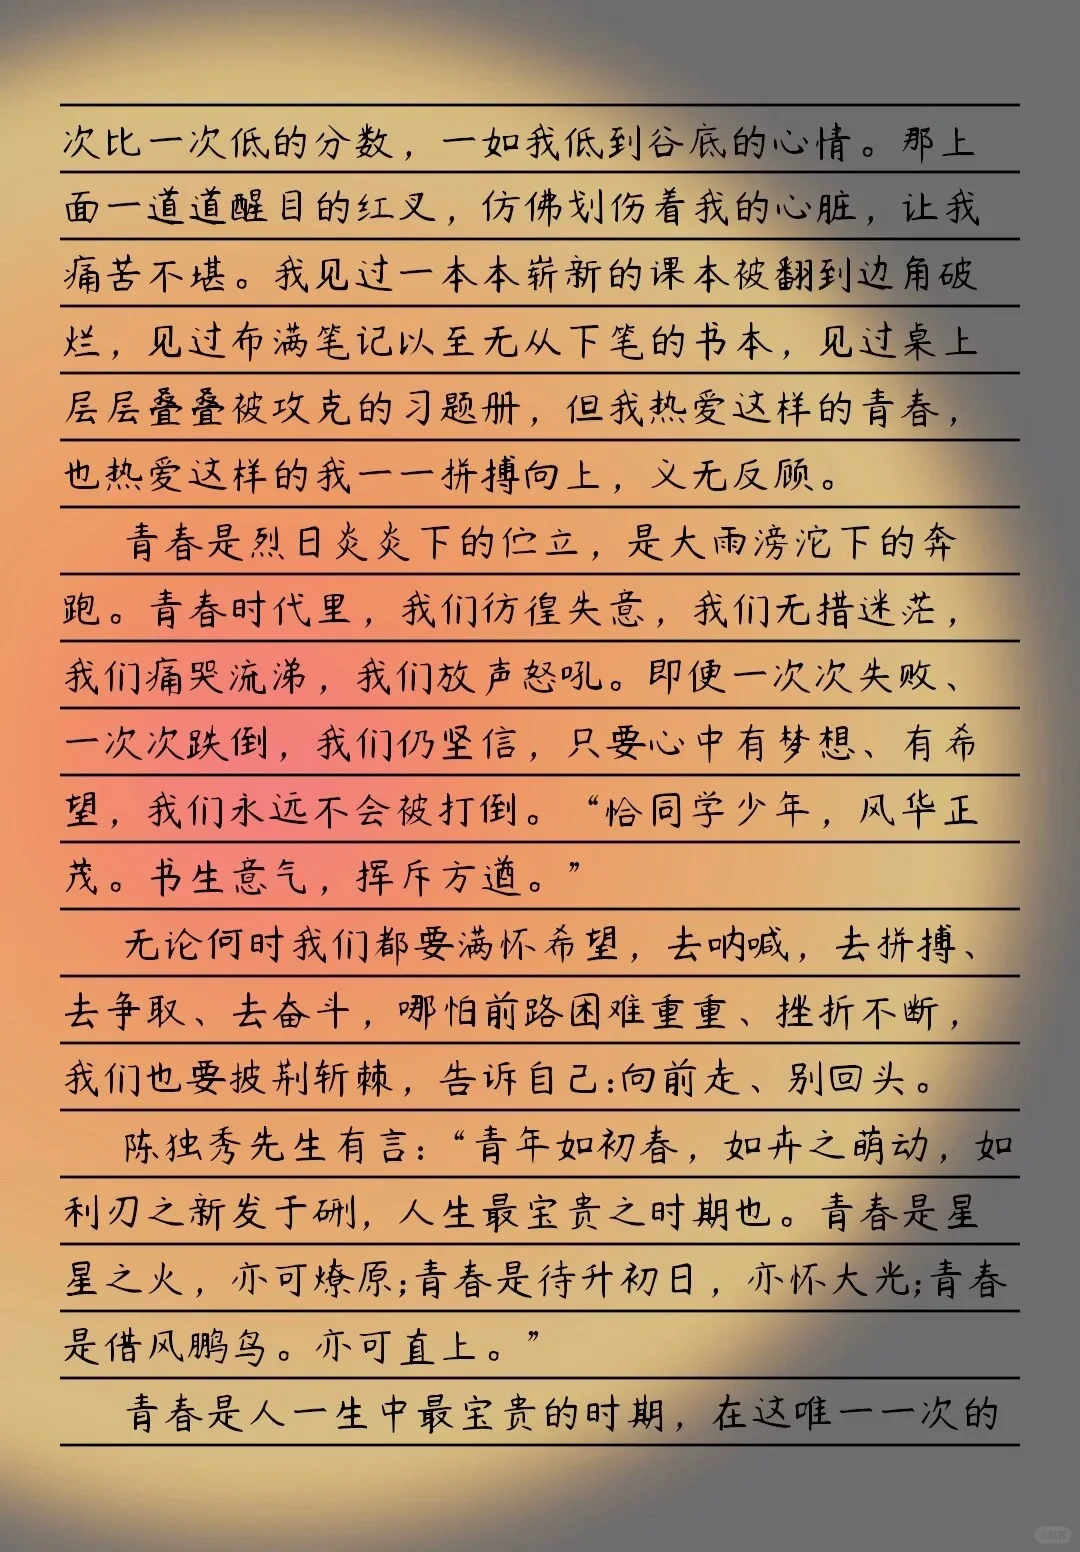 次比一次低的分数，一如我低到谷底的心情。那上
面一道道醒目的红叉，仿佛划伤着我的心脏，让我
痛苦不堪。我见过一本本崭新的课本被翻到边角破
烂，见过布满笔记以至无从下笔的书本，见过桌上
层层叠叠被攻克的习题册，但我热爱这样的青春，
也热爱这样的我一一拼搏向上，义无反顾。
青春是烈日炎炎下的伫立，是大雨滂沱下的奔
跑。青春时代里，我们彷徨失意，我们无措迷茫，
我们痛哭流涕，我们放声怒吼。即便一次次失败、
一次次跌倒，我们仍坚信，只要心中有梦想、有希
望，我们永远不会被打倒。“恰同学少年，风华正
茂。书生意气，挥斥方遒。”
无论何时我们都要满怀希望，去呐喊，去拼搏、
去争取、去奋斗，哪怕前路困难重重、挫折不断，
我们也要披荆斩棘，告诉自己:向前走、别回头。
陈独秀先生有言：“青年如初春，如卉之萌动，如
利刃之新发于硎，人生最宝贵之时期也。青春是星
星之火，亦可燎原;青春是待升初日，亦怀大光;青春
是借风鹏鸟。亦可直上。”
青春是人一生中最宝贵的时期，在这唯一一次的
小红书